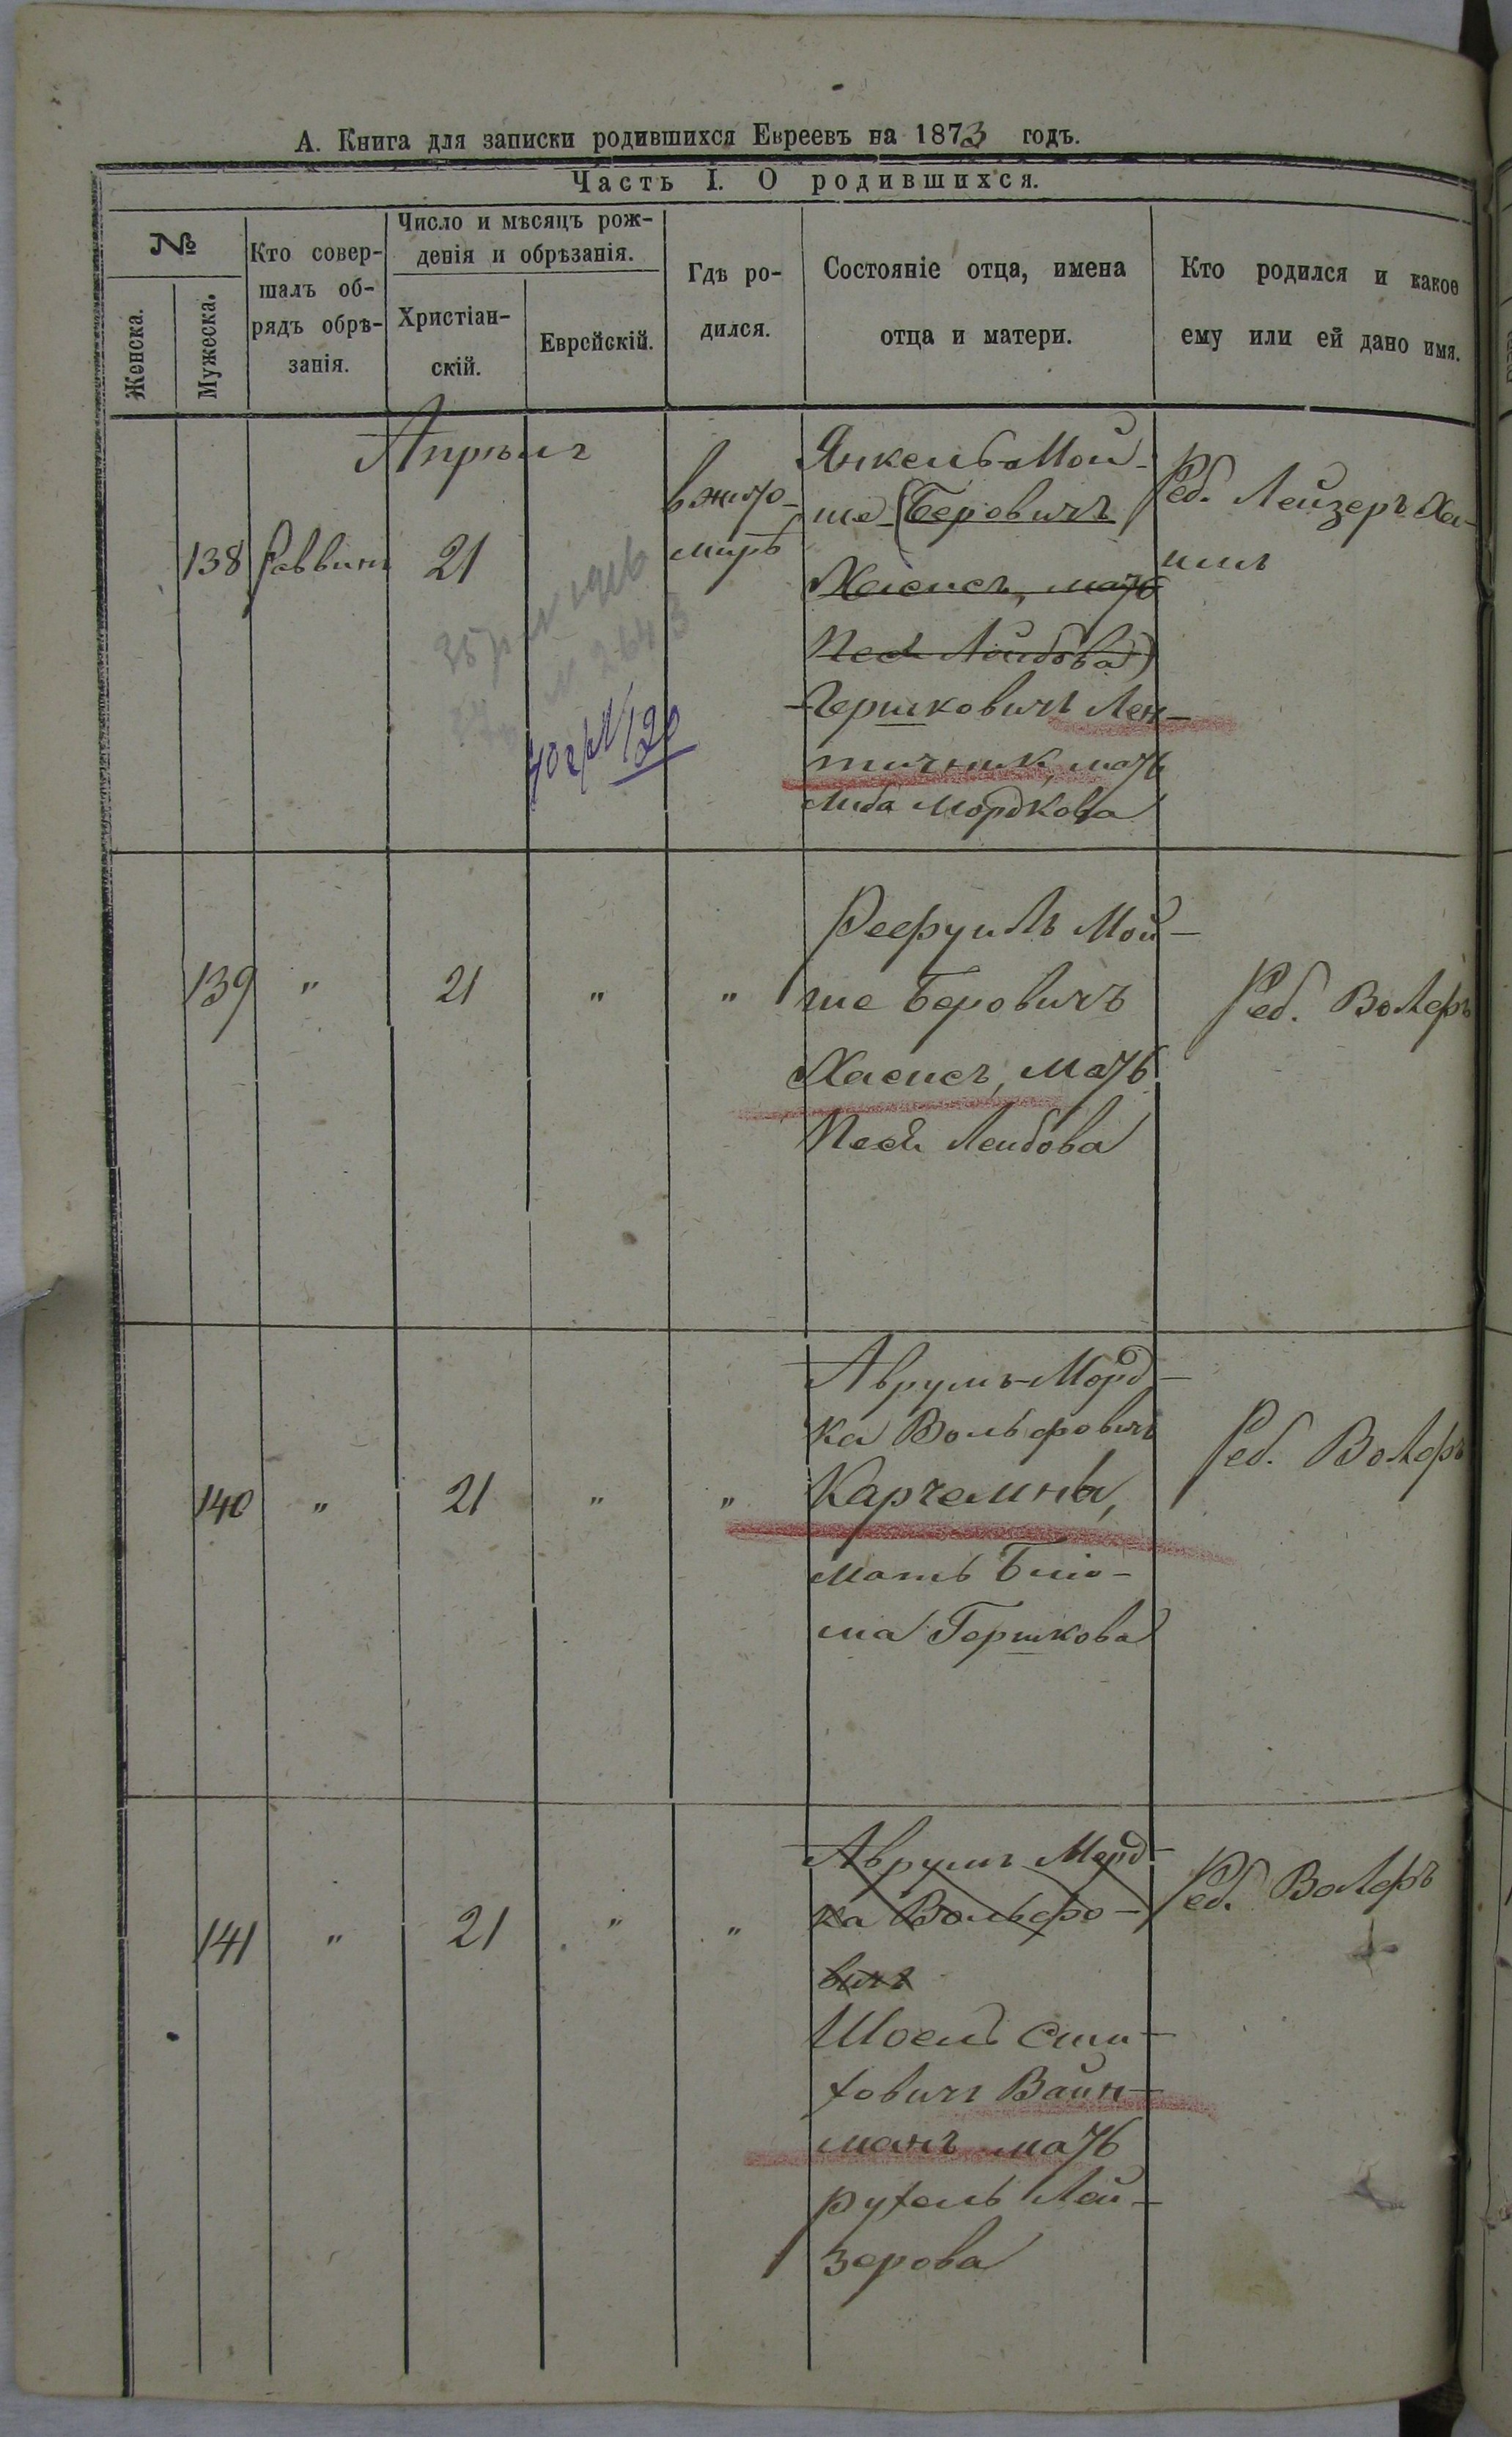 А. Книга для записки родившихся Евреевъ на 1873 годъ.
Часть I. О родившихся.
№
Женска.
Мужеска.
Кто совер-
шалъ об-
рядъ обрѣ-
занія.
Число и мѣсяцъ рож-
денія и обрѣзанія.
Христіан-
скій.
Еврейскій.
Гдѣ ро-
дился.
Состояніе отца, имена
отца и матери.
Кто родился и какое
ему или ей дано имя.
Апрѣль
138
Раввинъ
21
40 г/№120
в жито-
мирѣ
Янкель-Мой-
ше (Беровичъ
Хаенсъ, мать
Песя Лейбова)
Гершковичъ Лен-
тичник, мать
Либа Мордкова
Реб. Лейзеръ Ха-
имъ
139
"
21
"
"
Рефуиль Мой-
ше Беровичъ
Хаенсъ, мать
Песя Лейбова
Реб. Волфъ
140
"
21
"
"
Аврумъ-Морд-
ка Вольфовичъ
Карчемный,
мать Блю-
ма Гершкова
Реб. Волфъ
141
"
21
"
"
Аврумъ Морд-
ка Вольфо-
вичъ
Шоель Сим-
ховичъ Вайн-
манъ мать
Рухель Лей-
зерова
Реб. Волфъ